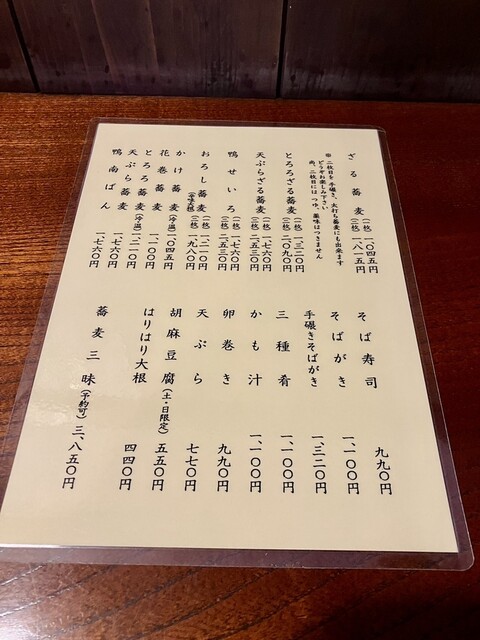 ざる蕎麦 (一枚) 一、〇四五円
(二枚) 一、八一五円
※ 二枚目を手碾き、太打ち蕎麦にも出来ます
どうぞお楽しみ下さい
尚、二枚目には つゆ、薬味はつきません
とろろざる蕎麦 (一枚) 一、三二〇円
(二枚) 二、〇九〇円
天ぷらざる蕎麦 (一枚) 一、七六〇円
(二枚) 二、五三〇円
鴨せいろ (一枚) 一、七六〇円
(二枚) 二、五三〇円
おろし蕎麦 (一枚) 一、二一〇円
(二枚) 一、九八〇円
かけ蕎麦 (冷・温) 一、〇四五円
花巻蕎麦 一、一〇〇円
とろろ蕎麦 (冷・温) 一、二一〇円
天ぷら蕎麦 一、七六〇円
鴨南ばん 一、七六〇円
そば寿司 九九〇円
そばがき 一、一〇〇円
手碾きそばがき 一、三二〇円
三種肴 一、一〇〇円
かも汁 一、一〇〇円
卵巻き 九九〇円
天ぷら 七七〇円
胡麻豆腐 (土・日限定) 五五〇円
はりはり大根 四四〇円
蕎麦三昧 (予約可) 三、八五〇円